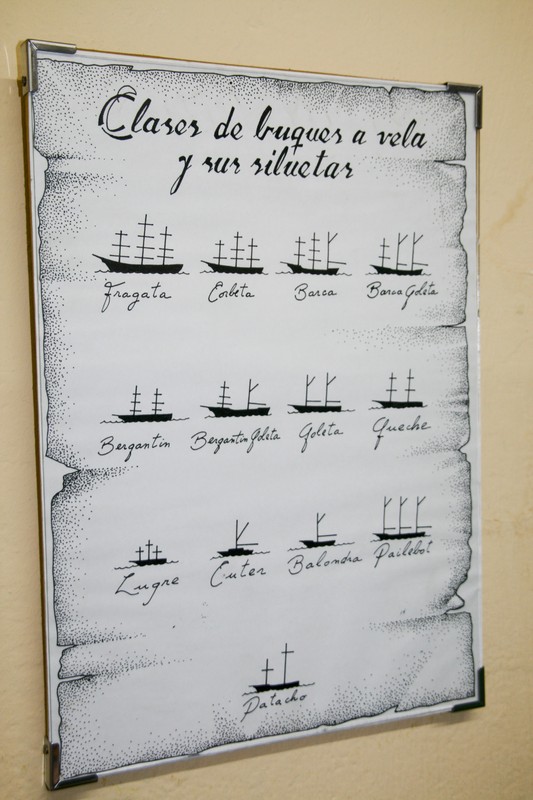 Clases de buques a vela
y sus siluetas
Fragata Corbeta Barca Barca Goleta
Bergantin Bergantin Goleta Goleta Queche
Lugre Cuter Balandra Pailebot
Patacho